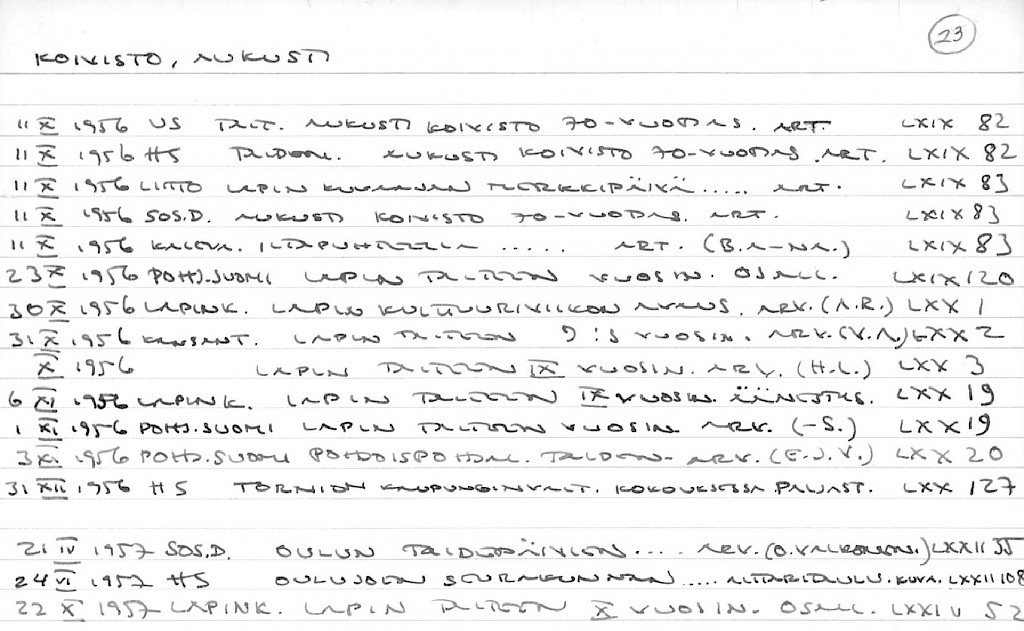 23
KOIVISTO, AUKUSTI
11 X 1956 US TAIT. AUKUSTI KOIVISTO 70-VUOTIAS. ART. LXIX 82
11 X 1956 HS TAIDEM. AUKUSTI KOIVISTO 70-VUOTIAS ART. LXIX 82
11 X 1956 LIITTO LAPIN KUVAAJAN MERKKIPÄIVÄ..... ART. LXIX 83
11 X 1956 SOS.D. AUKUSTI KOIVISTO 70-VUOTIAS. ART. LXIX 83
11 X 1956 KALEVA. ILTAPUHTEELLA ..... ART. (B.A-NA.) LXIX 83
23 X 1956 POHJ.SUOMI LAPIN TAITEEN VUOSIN. OSALL. LXIX 120
30 X 1956 LAPINK. LAPIN KULTUURIVIIKON AVAUS. ARV. (A.R.) LXX 1
31 X 1956 KANSANT. LAPIN TAITEEN 9:S VUOSIN. ARV. (V.A.) LXX 2
X 1956 LAPIN TAITEEN IX VUOSIN. ARV. (H.L.) LXX 3
6 XI 1956 LAPINK. LAPIN TAITEEN IX VUOSIN. ÄÄNESTYS. LXX 19
1 XI 1956 POHJ.SUOMI LAPIN TAITEEN VUOSIN ARV. (-S.) LXX 19
3 XI 1956 POHJ.SUOMI POHJOISPOHJAL. TAIDEN- ARV. (E.J.V.) LXX 20
31 XII 1956 HS TORNION KAUPUNGINVALT. KOKOUKSESSA PALJAST. LXX 127
21 IV 1957 SOS.D. OULUN TAIDEPÄIVIEN .... ARV. (O. VALKONEN.) LXXII 35
24 VI 1957 HS OULUJOEN SEURAKUNNAN ..... ALTTARITAULU. KUVA. LXXII 108
22 X 1957 LAPINK. LAPIN TAITEEN X VUOSIN. OSALL. LXXIV 52